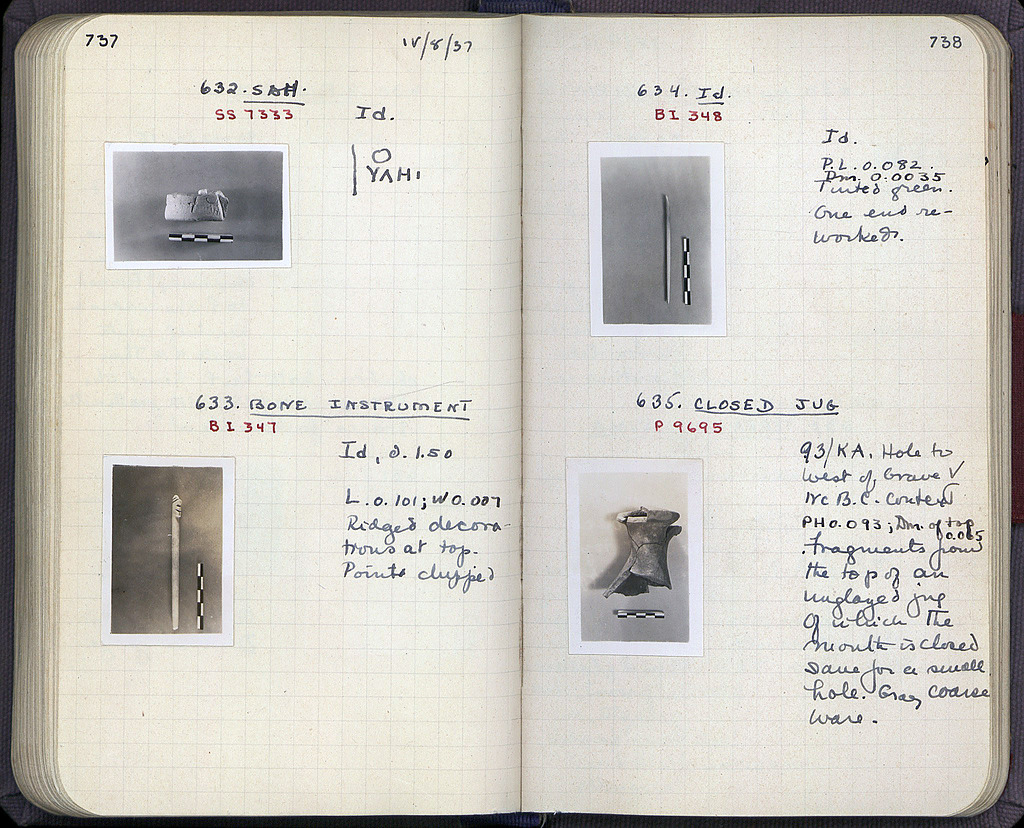 737
IV/8/37
632. SAH.
SS 7333
Id.
O
YAHI
633. BONE INSTRUMENT
BI 347
Id, d. 1.50
L. 0.101; W 0.007
Ridged decora-
tions at top.
Point chipped
738
634. Id.
BI 348
Id.
P.L. 0.082.
Dm. 0.0035
Tinted green.
One end re-
worked.
635. CLOSED JUG
P 9695
93/KA. Hole to
West of Grave V
IVc B.C. Context
PH 0.093; Dm. of top
0.065
Fragments from
the top of an
unglazed jug
of which the
mouth is closed
save for a small
hole. Gray coarse
ware.